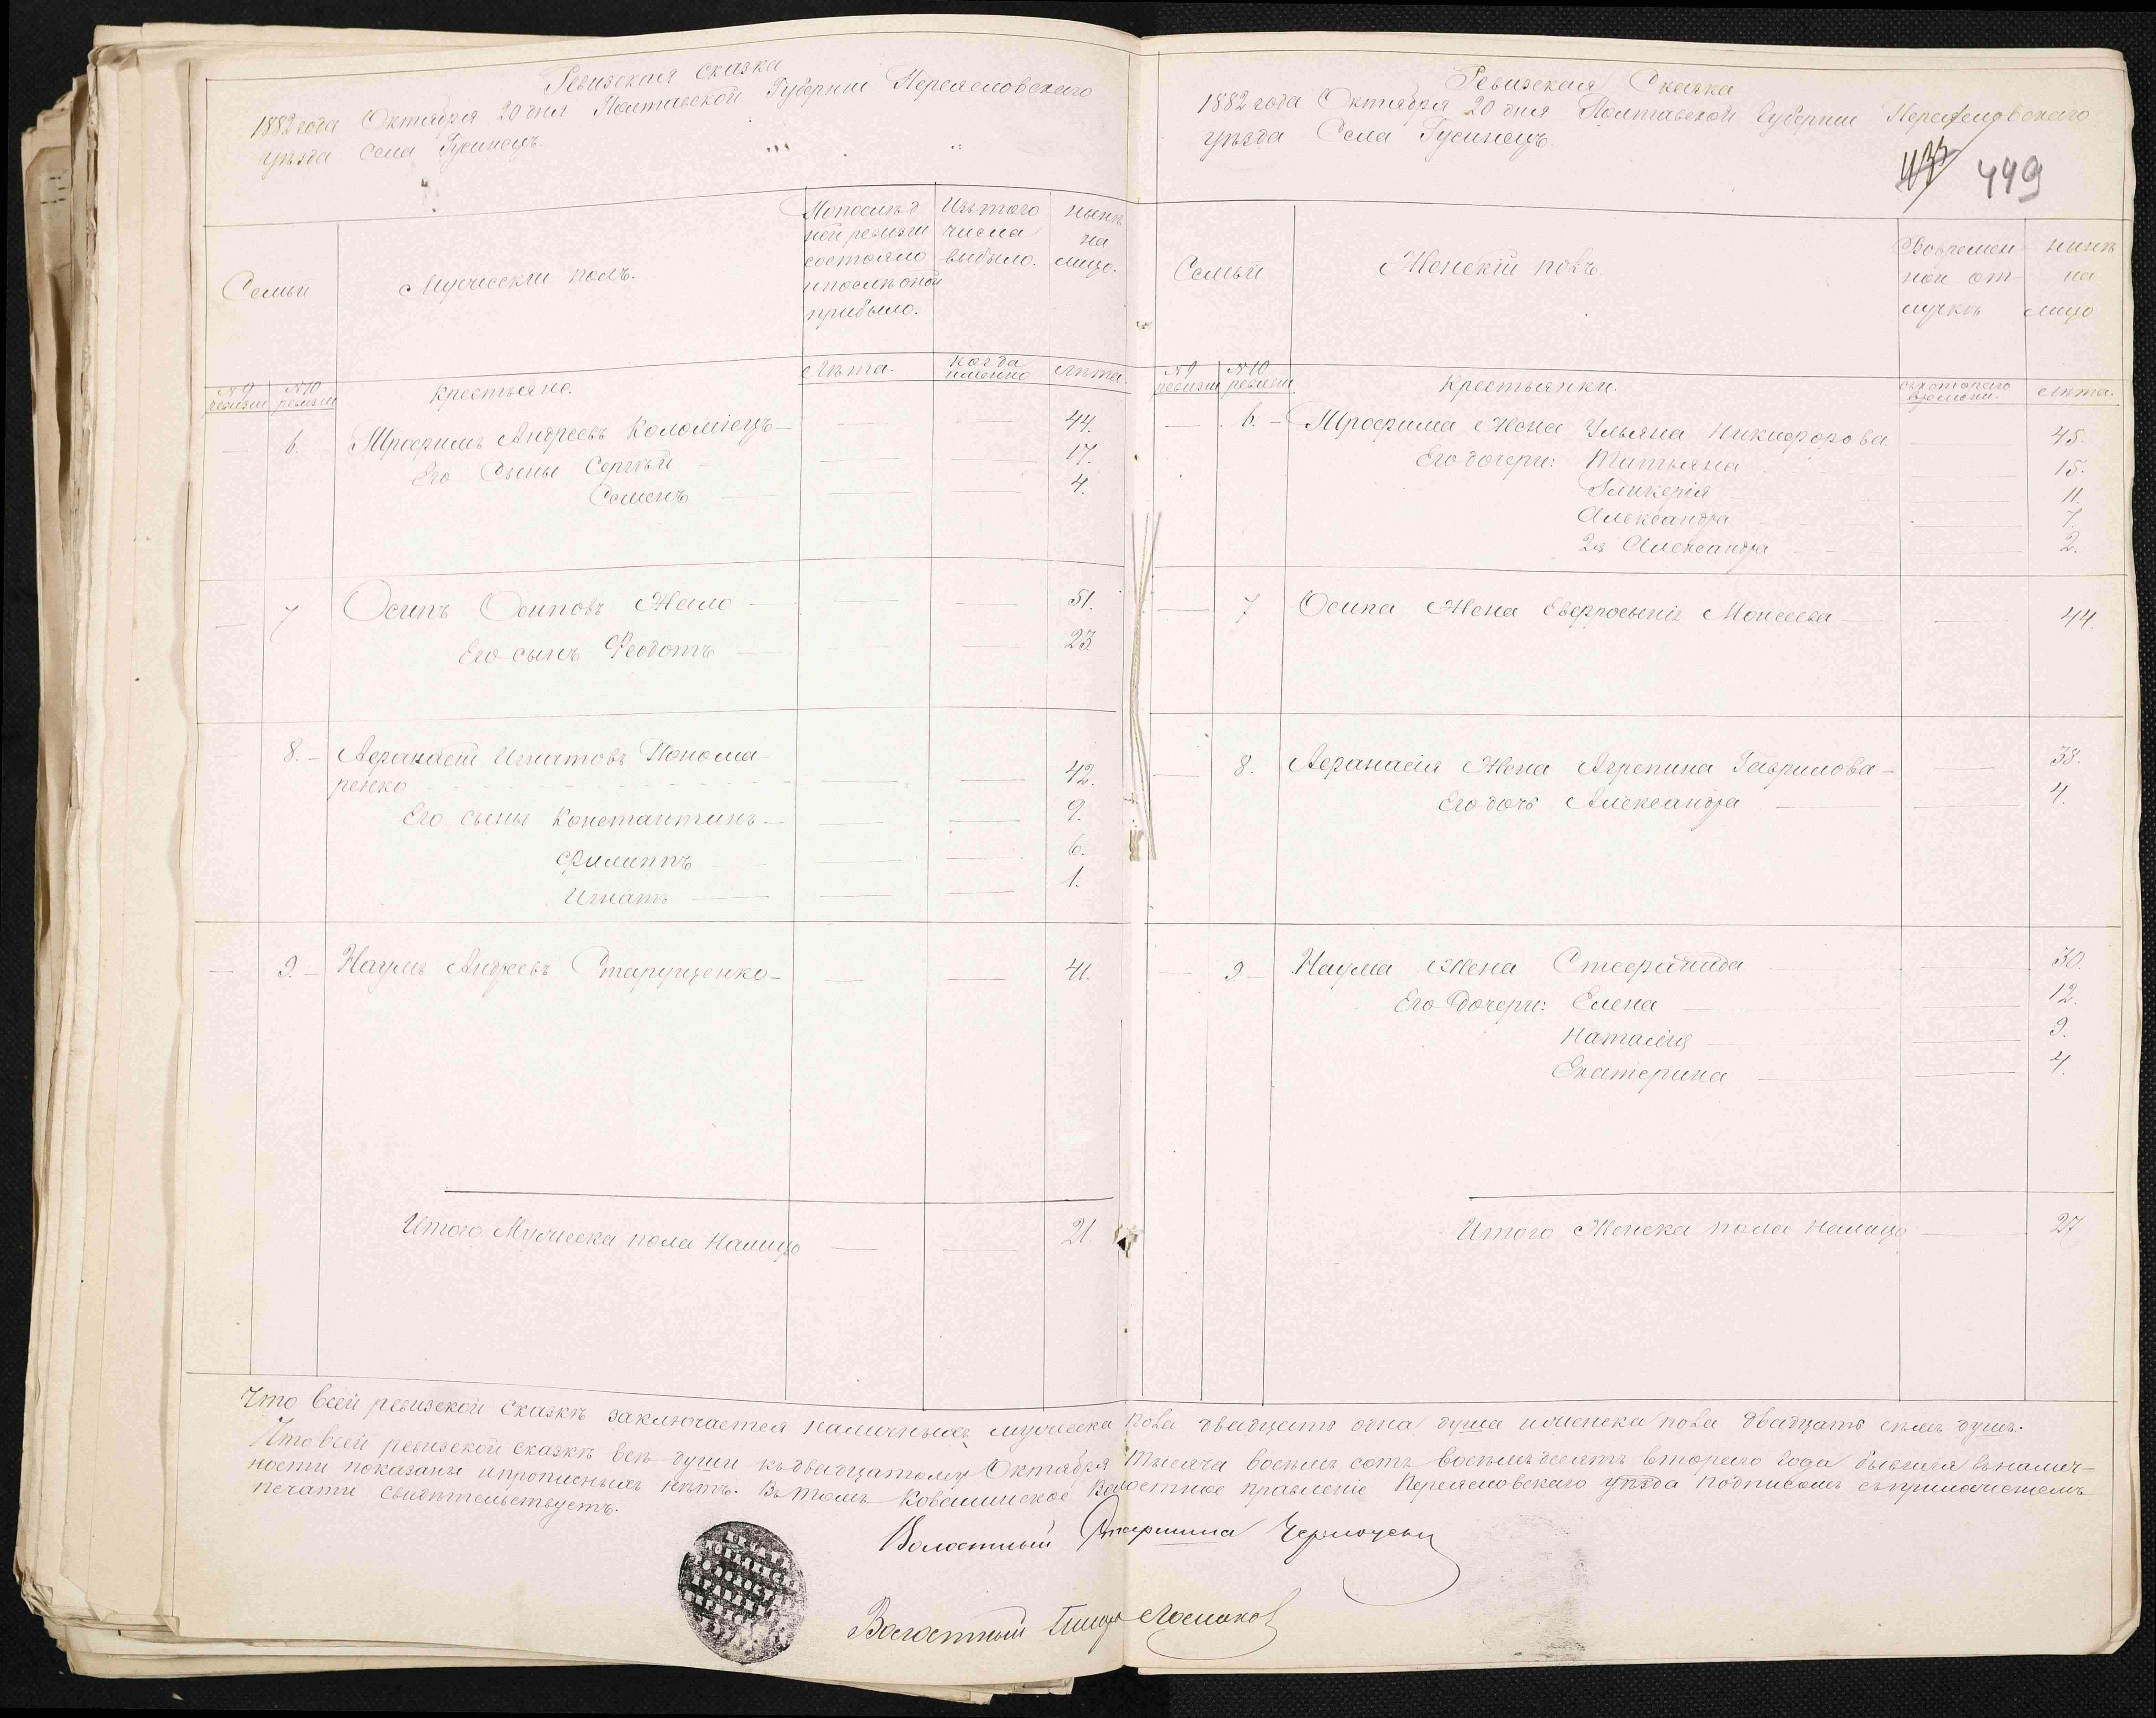 Ревизская сказка
1882 года Октября 20 дня Полтавской Губернии Переясловскаго
уѣзда Села Гусинецъ.
Семьи
Мужескій полъ.
Попослѣд
ней ревизіи
состояло
ипослѣ оной
прибыло.
Изътого
числа
выбыло.
нынѣ
на
лицо.
№9 ревизіи
№10 ревизіи
Крестьяно.
Лѣта.
когда именно
Лѣта.
— 6. Трофимъ Андреевъ Коломіецъ — — — 44.
Его Сыны Сергѣй — — 17.
Семенъ — — — 4.
— 7 Осипъ Осиповъ Жало — — — 51.
Его сынъ Феодотъ — — — 23.
— 8. — Афанасій Игнатовъ Понома-
ренко — — 42.
Его сыны Константинъ — — — 9.
Филиппъ — — — 6.
Игнатъ — — — 1.
— 9. — Наумъ Андреевъ Старущенко — — — 41.
Итого Мужеска пола Налицо — — 21
Ревизская Сказка
1882 года Октября 20 дня Полтавской Губернии Переясловскаго
уѣзда Села Гусинецъ.
449
Семьи
Женскій полъ.
Вовремен-
ной от-
лучкѣ
нинѣ
на
лицо
№9 ревизіи
№10 ревизіи
Крестьянки.
съкотораго времени.
Лѣта.
— 6. — Трофима Жена Ульяна Никифорова — 45.
Его дочери: Татьяна — 15.
Гликерія — 11.
Александра — 7.
2я Александра — 2.
— 7 Осипа Жена Евфросынія Моисеева — — 44.
— 8. Афанасія Жена Агрепина Гаврилова — — 38.
Его дочь Александра — — 4.
9 — Наума Жена Стефанида — 30.
Его Дочери: Елена — — 12.
Наталія — — 9.
Екатерина — — 4.
Итого Женска пола налицо — 27
Что всей ревизской сказкѣ заключается наличныхъ мужеска пола двадцать одна душа иженска пола двадцать семъ душъ.
Что всей ревизской сказкѣ всѣ души къдвадцатому Октября Тысяча восемь сотъ восемьдесятъ втораго года бывшія въналич-
ности показаны ипрописныхъ нѣтъ. Въ томъ Ковалинское Волостное правленіе Переясловскаго уѣзда подписомъ съприложеніемъ
печати свидѣтельствуетъ.
Волостный Старшина
Волостный